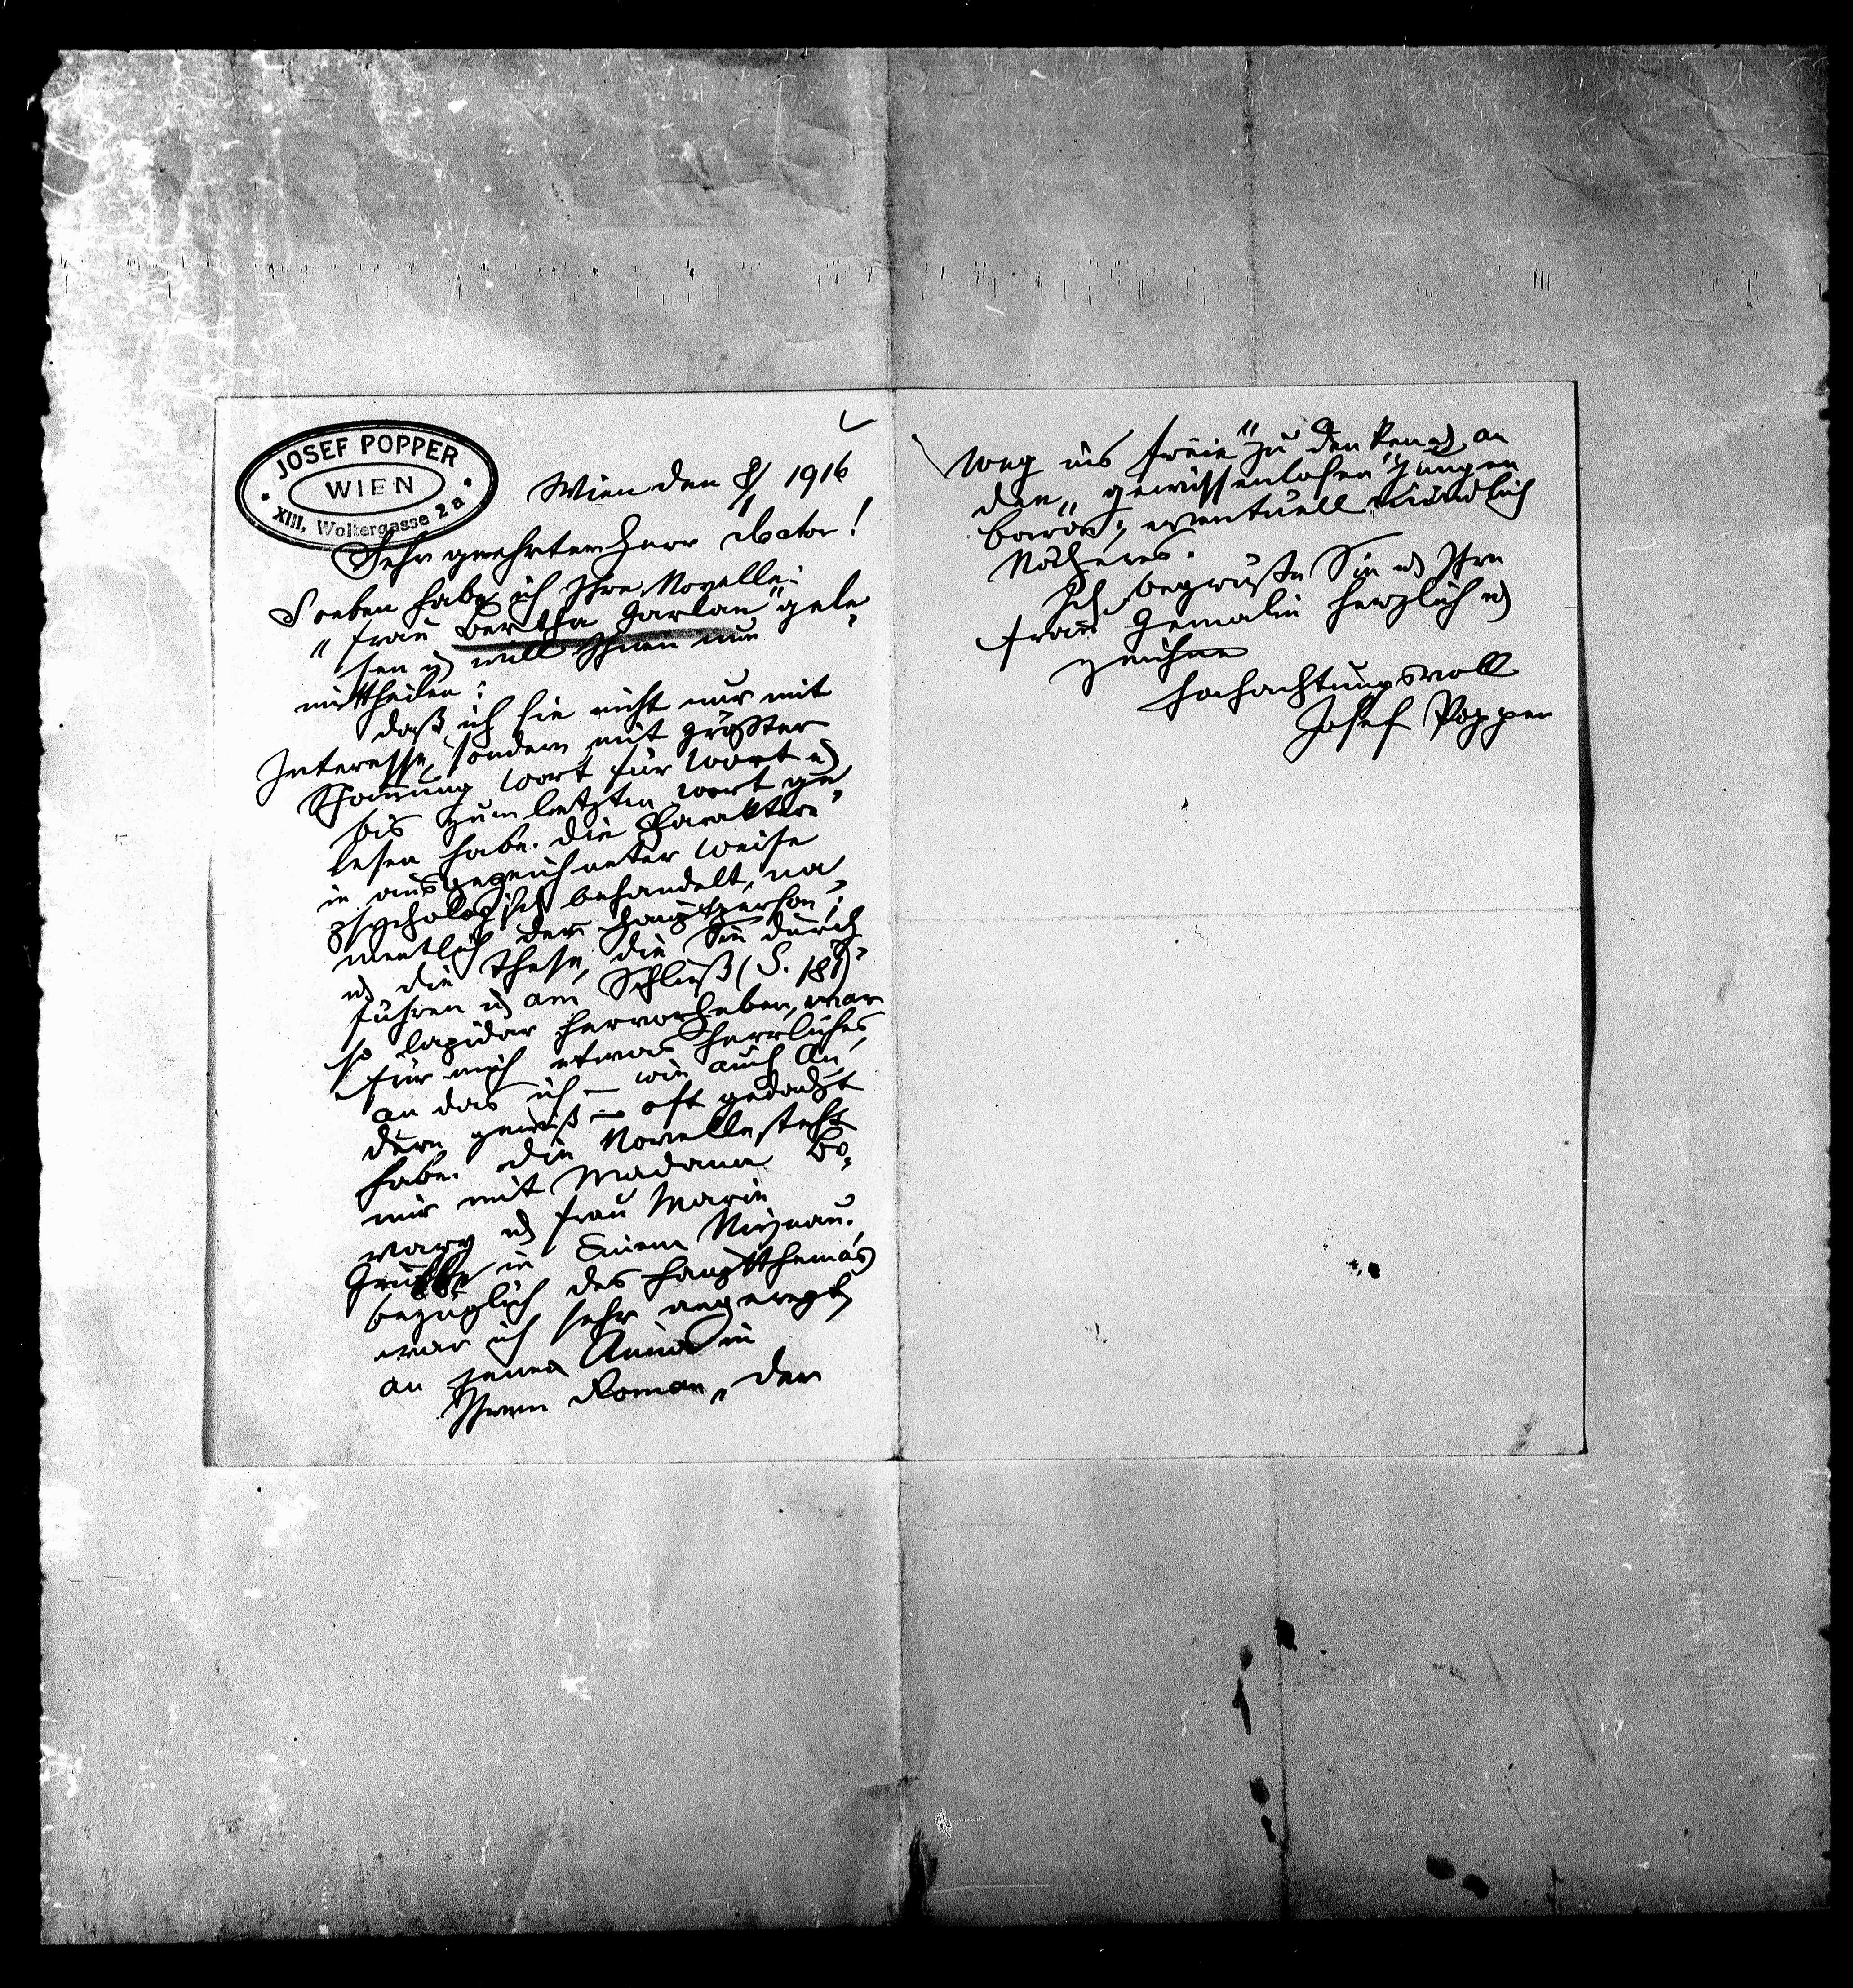 JOSEF POPPER
WIEN
XIII. Woltergasse 2a
Wien den 8/1 1916
Sehr geehrter Herr Doctor!
Soeben habe ich Ihre Novelle:
„Frau Bertha Garlan“ gele-
sen u will Ihnen nun
mittheilen:
daß ich sie nicht nur mit
Interesse, sondern mit größter
Spannung Wort für Wort u
bis zum letzten Wort ge-
lesen habe. Die Charaktere
in ausgezeichneter Weise
psychologisch behandelt, na-
mentlich der Hauptperson;
u die These, die Sie durch-
führen u am Schluß (S. 181)
so lapidar hervorheben, war
für mich etwas Herrliches,
an das ich – wie auch An-
dere gewiß – oft gedacht
habe. Die Novelle steht
mir mit Madame Bo-
vary u Frau Marie
Grubbe in Einem Niveau.
bezüglich des Hauptthemas
war ich sehr angeregt,
an jene Anna in
Ihrem Roman „Der
Weg ins Freie“ zu denken u an
den „gewissenlosen“ jungen
Baron; eventuell mündlich
Näheres.
Ich begrüße Sie u Ihre
Frau Gemalin herzlich u
zeichne
hochachtungsvoll
Josef Popper